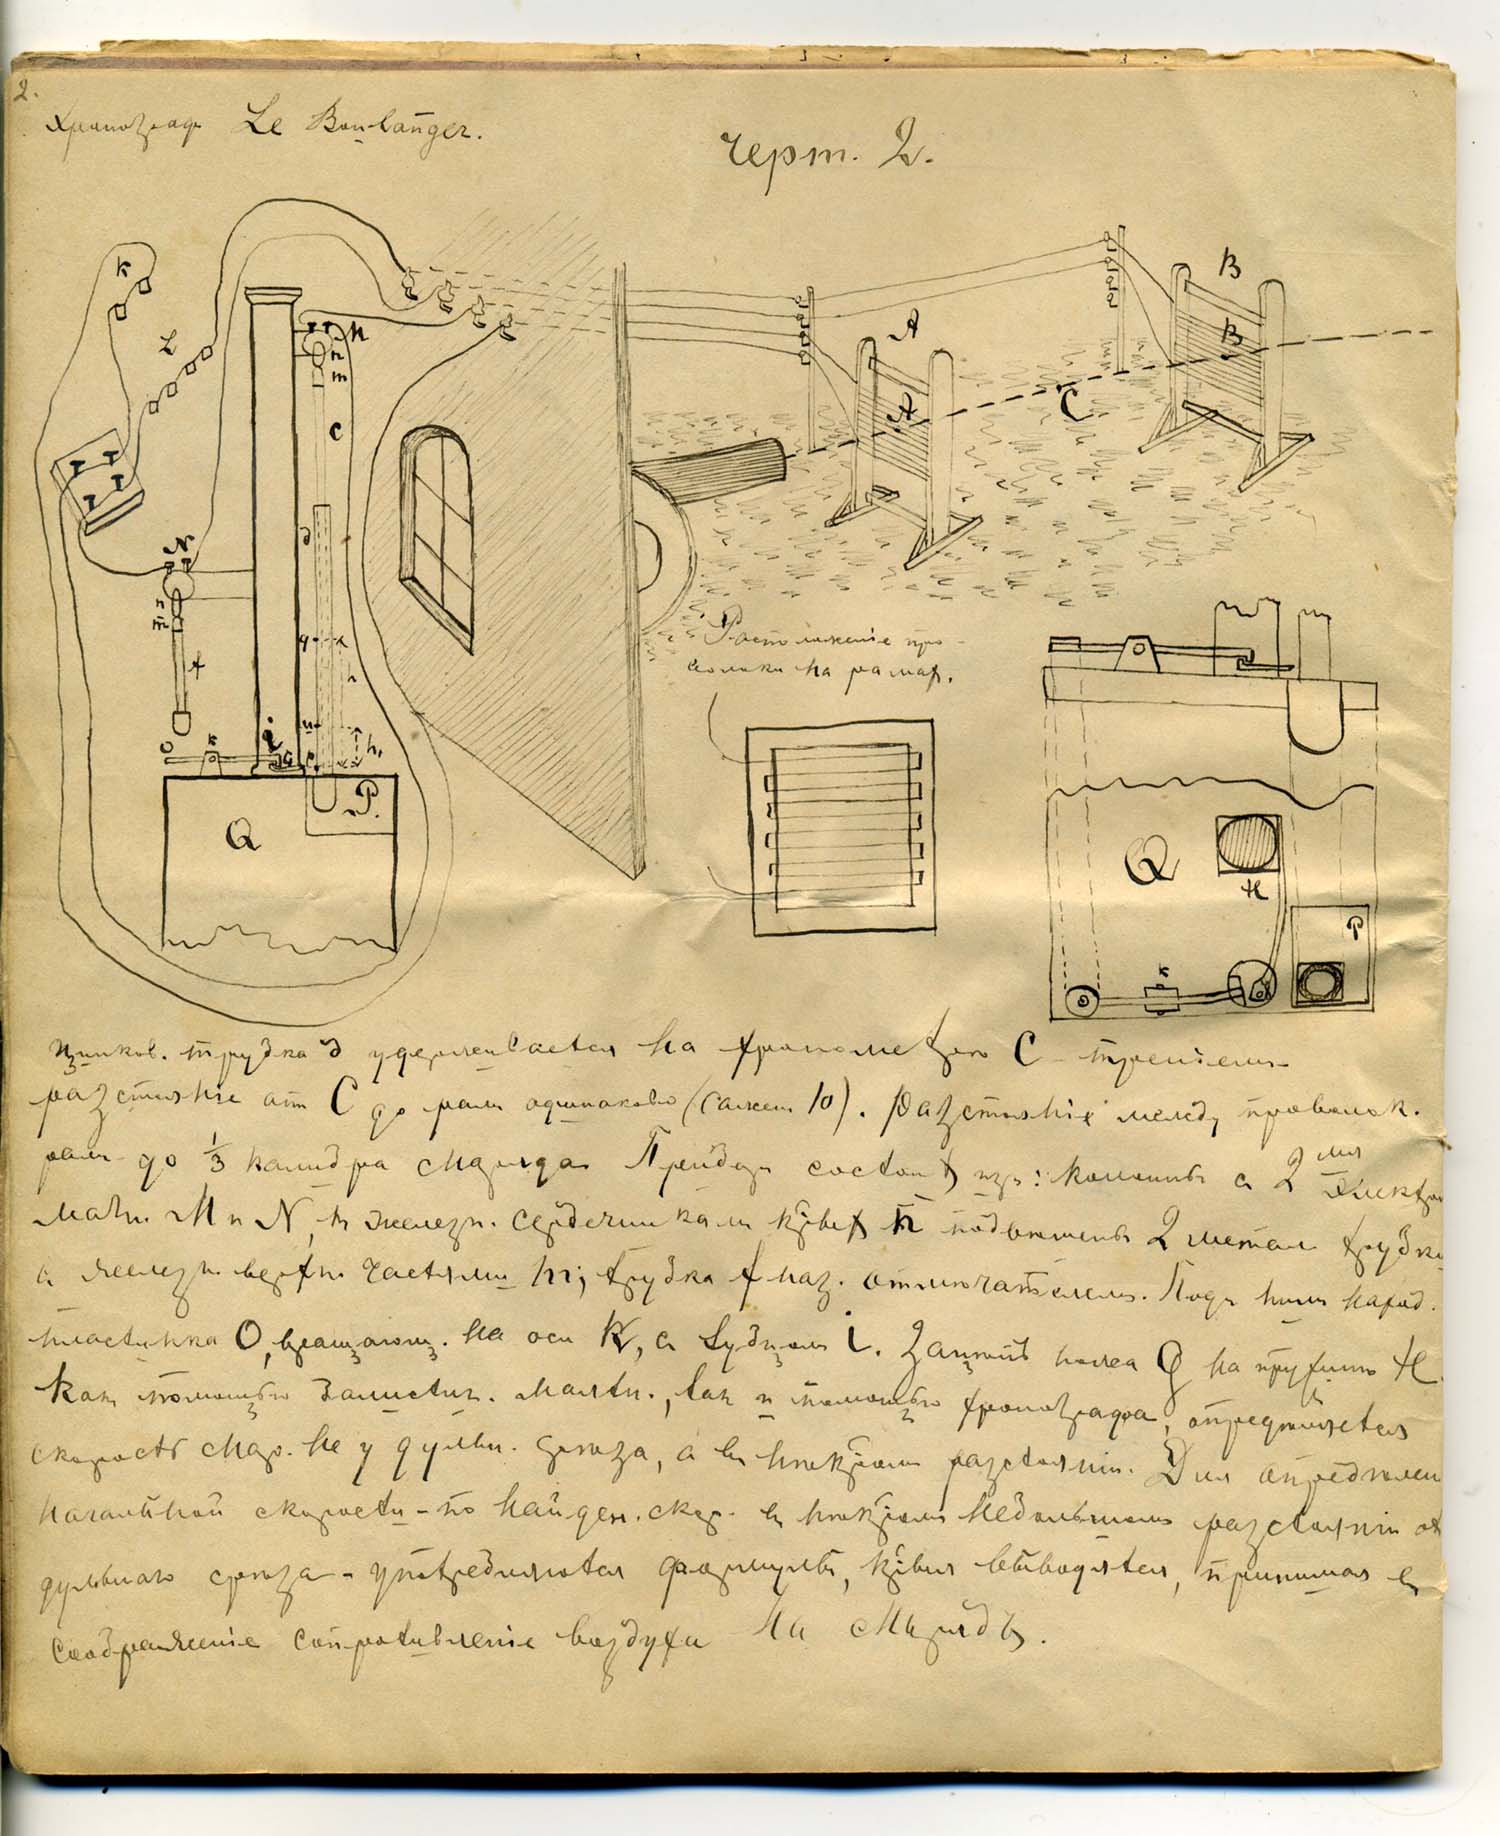 2.
Хронограф Le Boulanger.
Черт. 2.
K
L
M
n
m
C
N
n
m
f
O
K
i
G
h
h,
P.
Q
A
A
B
B
C
Расположенiе про-
волоки на рамах.
Q
H
P
K
цинков. трубка d удерживается на хронометре C - тренiем
разстоянiе от C до рам одинаково (сажен 10). Разстоянiе между проволок.
рам - до 1/3 калибра снаряда Прибор состоит из: колонны с 2мя Электро
магн. M и N, с железн. сердечниками кторых n подвешены 2 метал. трубки
с железн. верхн. частями m; трубка f наз. отмечателем. Под ним наход.
пластинка O, вращающ. на оси K, с зубцом i. Зацепив ножа G на пружине H.
Как помощью баллистич. маятн., так и помощью хронографа, определяется
скорость снар. не у дульн. среза, а в некотром разстоянiи. Для определен
начальной скорости - по найден. скор. в некотром небольшом разстоянiи от
дульнаго среза - употребляются формулы, кторыя выводятся, принимая в
соображенiе сопротивленiе воздуха на снаряд.